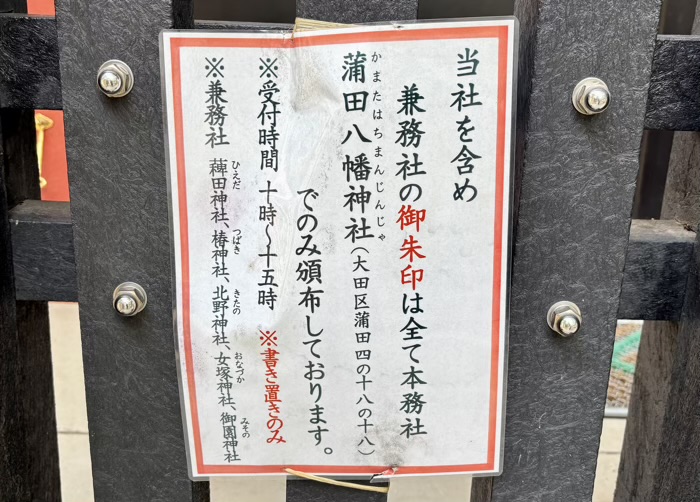 当社を含め
兼務社の御朱印は全て本務社
蒲田八幡神社(大田区蒲田四の十八の十八)
かまたはちまんじんじゃ
でのみ頒布しております。
※受付時間 十時〜十五時 ※書き置きのみ
※兼務社 稗田神社、椿神社、北野神社、女塚神社、御園神社
ひえだ つばき きたの おなづか みその